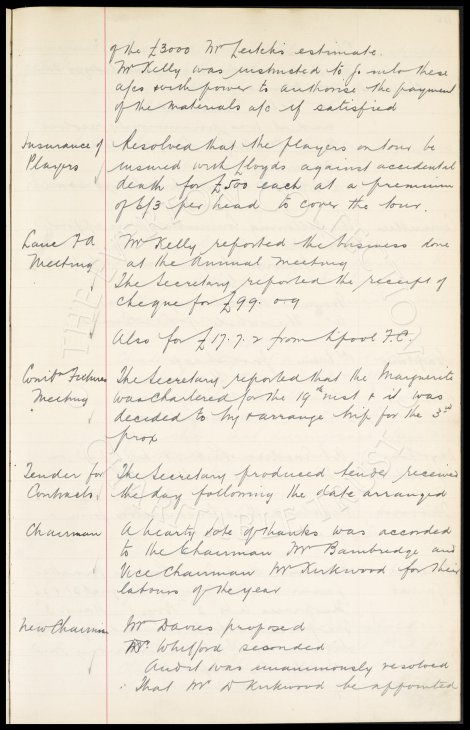 of the £3000 Mr Leitch's estimate.
Mr Kelly was instructed to go into these
a/cs & with power to authorise the payment
of the materials a/c if satisfied
Insurance of Players
Resolved that the players on tour be
insured with Lloyds against accidental
death for £500 each at a premium
of 6/3 per head to cover the tour.
Lanc F A Meeting
Mr Kelly reported the business done
at the Annual Meeting
The Secretary reported the receipt of
cheque for £99. 0. 9
Also for £17. 7. 2 from Lpool F.C.
Meeting
The Secretary reported that the Marguerite
was chartered for the 19th inst & it was
decided to try & arrange trip for the 3rd
prox
Tender for Contracts
The Secretary produced tender received
the day following the date arranged
Chairman
A hearty vote of thanks was accorded
to the Chairman Mr Bainbridge and
Vice Chairman Mr Kirkwood for their
labours of the year
New Chairman
Mr Davies proposed
Mr. Whitford seconded
And it was unanimously resolved
That Mr D Kirkwood be appointed